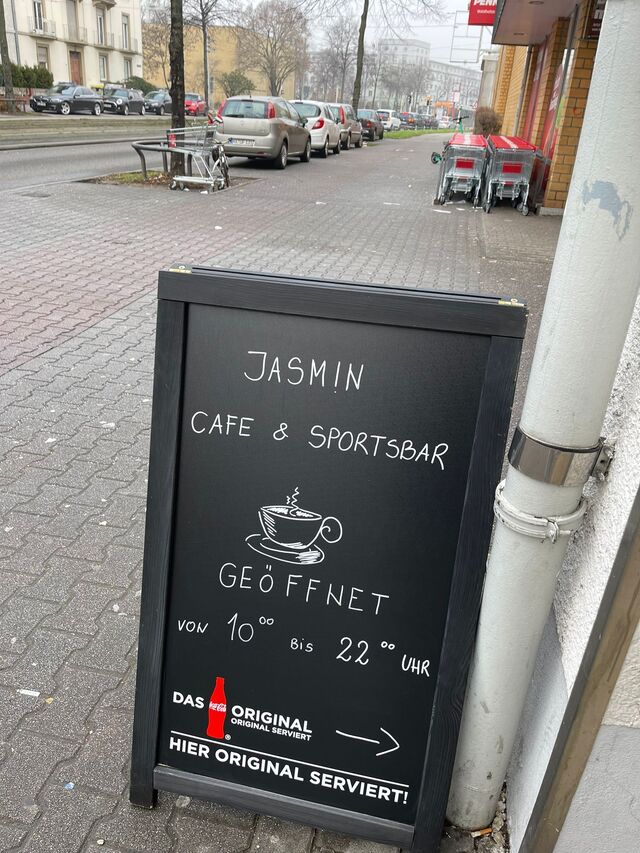 PENN
JASMIN
CAFE & SPORTSBAR
GEÖFFNET
VON 10°° BIS 22°° UHR
DAS Coca-Cola ORIGINAL
ORIGINAL SERVIERT
HIER ORIGINAL SERVIERT!